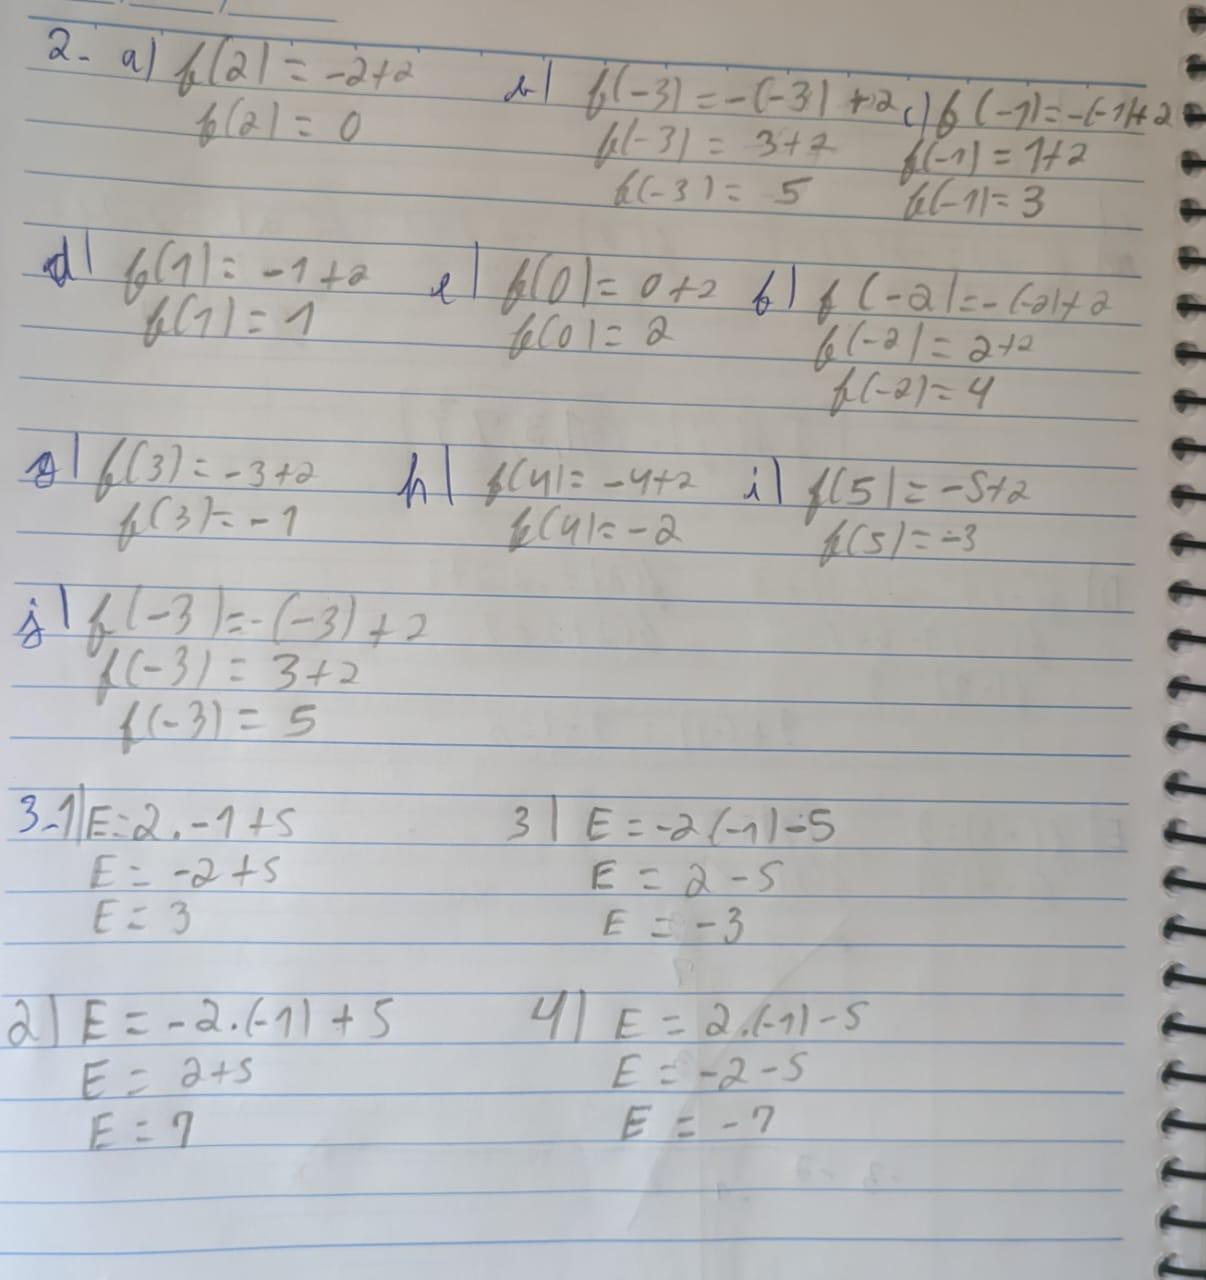 2- a) f(2) = -2+2 b) f(-3) = -(-3) + 2 c) f(-1) = -(-1)+2
f(2) = 0 f(-3) = 3+2 f(-1) = 1+2
f(-3) = 5 f(-1) = 3
d) f(1) = -1+2 e) f(0) = 0+2 f) f(-2) = -(-2)+2
f(1) = 1 f(0) = 2 f(-2) = 2+2
f(-2) = 4
g) f(3) = -3+2 h) f(4) = -4+2 i) f(5) = -5+2
f(3) = -1 f(4) = -2 f(5) = -3
j) f(-3) = -(-3) + 2
f(-3) = 3+2
f(-3) = 5
3-1) E = 2.-1+5 3) E = -2(-1)-5
E = -2+5 E = 2-5
E = 3 E = -3
2) E = -2.(-1) + 5 4) E = 2.(-1)-5
E = 2+5 E = -2-5
E = 7 E = -7